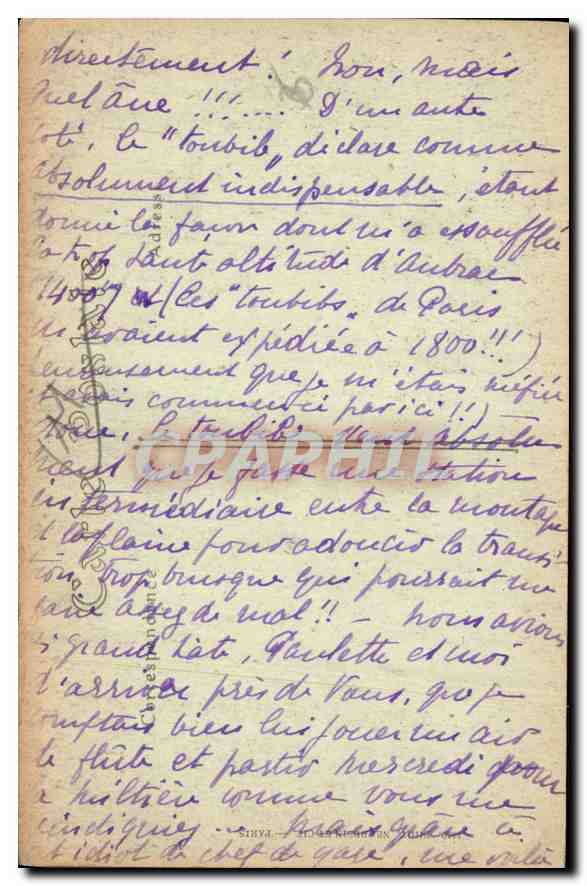 directement ! Non, mais
quel âne !!! .... D'un autre
côté, le "toubib" déclare comme
absolument indispensable, étant
donné la façon dont m'a essoufflée
la trop haute altitude d'Aubrac
1400 (Ces "toubibs" de Paris
m'avaient expédiée à 1800 !!!)
heureusement que je m'étais méfiée
commencé par ici !!)
Donc, le toubib veut absolu
ment que je fasse une station
intermédiaire entre la montagne
et la plaine pour adoucir la transi-
tion trop brusque qui pourrait me
faire assez de mal !! - Nous avions
si grand hâte, Paulette et moi
d'arriver près de Vous, que je
comptais bien lui jouer un air
de flûte et partir mercredi pour
la comme vous me
l'indiquiez .. Mais grâce à
cet idiot de chef de gare, me voilà
Adresse
Correspondance
Carte Postale
PARIS
CARTAPHILIA